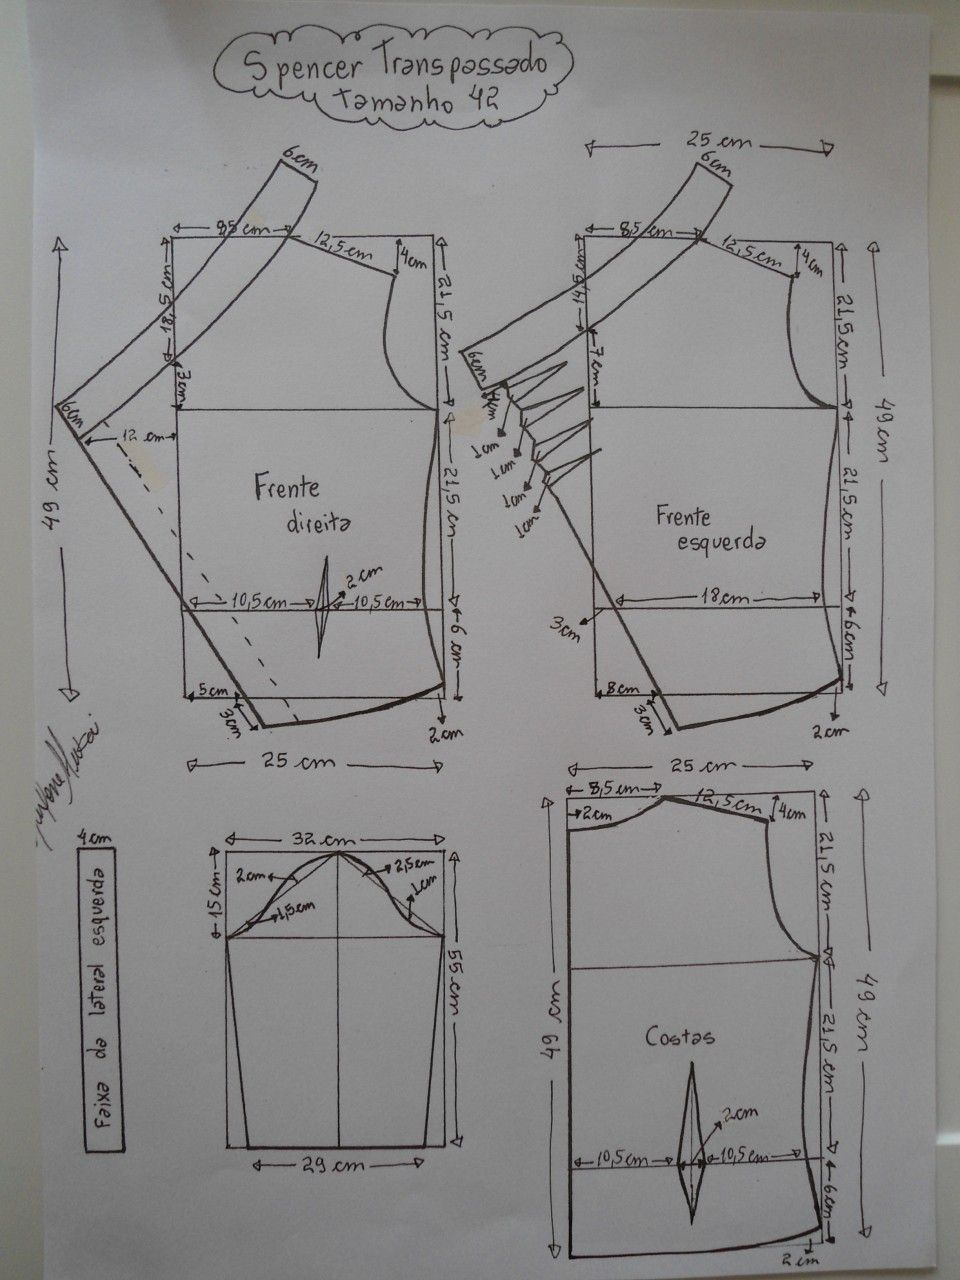 Spencer Transpassado
Tamanho 42
6cm
8,5 cm
12,5cm
4cm
18,5cm
3cm
21,5 cm
6cm
12 cm
49 cm
Frente
direita
21,5 cm
2cm
10,5cm
10,5cm
6 cm
5cm
3cm
2cm
25 cm
25 cm
6cm
8,5cm
12,5cm
4cm
14,5cm
7cm
21,5cm
49 cm
6cm
1cm
1cm
1cm
1cm
1cm
Frente
esquerda
21,5cm
18cm
3cm
6cm
8cm
3cm
2cm
4cm
Faixa da lateral esquerda
32 cm
15 cm
2cm
2,5cm
1,5cm
1cm
55cm
29 cm
25 cm
8,5cm
12,5cm
4cm
2cm
21,5 cm
49 cm
49 cm
Costas
21,5cm
2cm
10,5cm
10,5cm
6cm
2cm